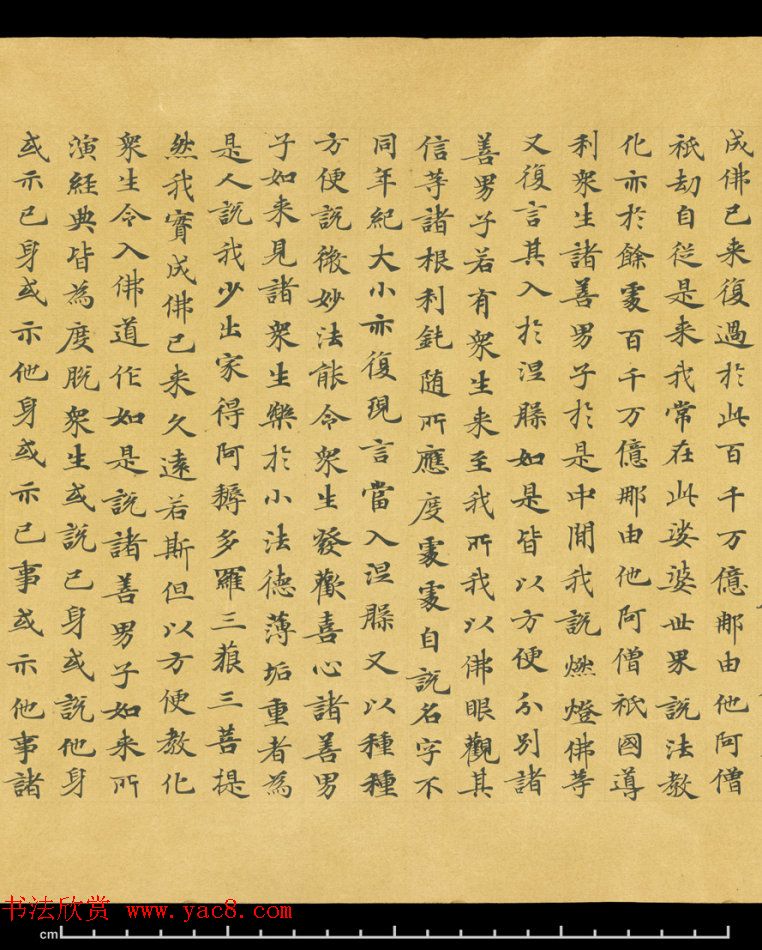 成佛已来復過於此百千万億那由他阿僧
祇劫自従是来我常在此娑婆世界說法教
化亦於餘處百千万億那由他阿僧祇國導
利衆生諸善男子於是中間我說燃燈佛等
又復言其入於涅槃如是皆以方便分別諸
善男子若有衆生来至我所我以佛眼觀其
信等諸根利鈍随所應度處處自說名字不
同年紀大小亦復現言當入涅槃又以種種
方便說微妙法能令衆生發歡喜心諸善男
子如来見諸衆生樂於小法德薄垢重者為
是人說我少出家得阿耨多羅三藐三菩提
然我實成佛已来久遠若斯但以方便教化
衆生令入佛道作如是說諸善男子如来所
演經典皆為度脫衆生或說己身或說他身
或示己身或示他身或示己事或示他事諸
书法欣赏 www.yac8.com
cm